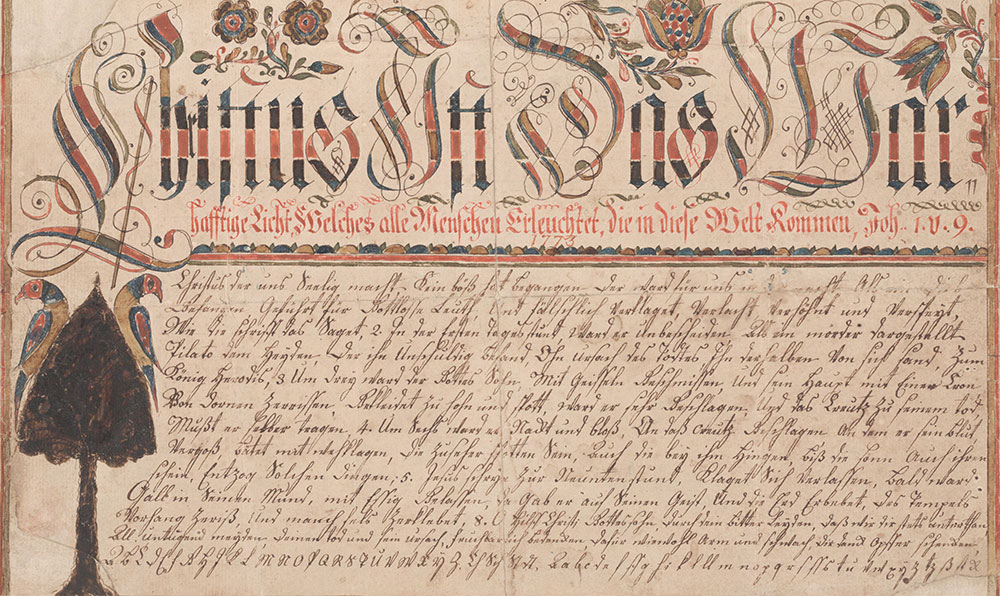 Christus Ist Das War
hafftige Licht, Welches alle Menschen Erleuchtet, die in diese Welt Kommen, Joh.. 1. v. 9.
1773
11
Christus der uns Seelig macht. Kein böß hat begangen Der ward für uns in
Gefangen Geführt für Gottlose Leuth, Und fälschlich Verklaget, Verlacht Verhöhnt und Verspeyt,
Wie die Schrifft das Saget, 2. In der Ersten tagesstund Ward er unbescheiden Als ein mörder dargestellt
Pilato dem Heyden, Der ihn Unschuldig befand Ohn ursach des Todtes Ihn derselben Von sich sand, Zum
König Herodis, 3 Um drey ward der Gottes Sohn, Mit Geisseln Geschmissen Und sein Haupt mit Einer Cron
Von Dornen Zerrissen. Bekleidet Zu hohn und spott, Ward er sehr Geschlagen Und das Creutz Zu seinem tod,
Mußt er selber tragen 4. Um Sechs ward er Nackt und bloß, An daß Creutz Geschlagen An dem er sein blut
Vergoß, bätet mit wehklagen, die Zuseher spotten Sein, Auch die bey ihm Hingen biß die sonn Auch ihren
schein, Entzog Solchen Dingen, 5. Jesus schrye Zur Neunten stund, Klaget Sich Verlassen, bald ward
Gall in Seinen Mund, mit Essig Gelassen, Da Gab er auf Seinen Geist, Und die Erd Erbebet, des Tempels
Vorhang Zeriß, Und manch fels Zerklebet, 8. O Hilff Christi Gottes sohn durch dein bitter Leyden, Daß wir dir stets unterthan
All untugend meyden Deinen tod und sein ursach, fruchtbarlich bedencken dafür wiewohl Arm und schwach, dir danck Opffer schencken